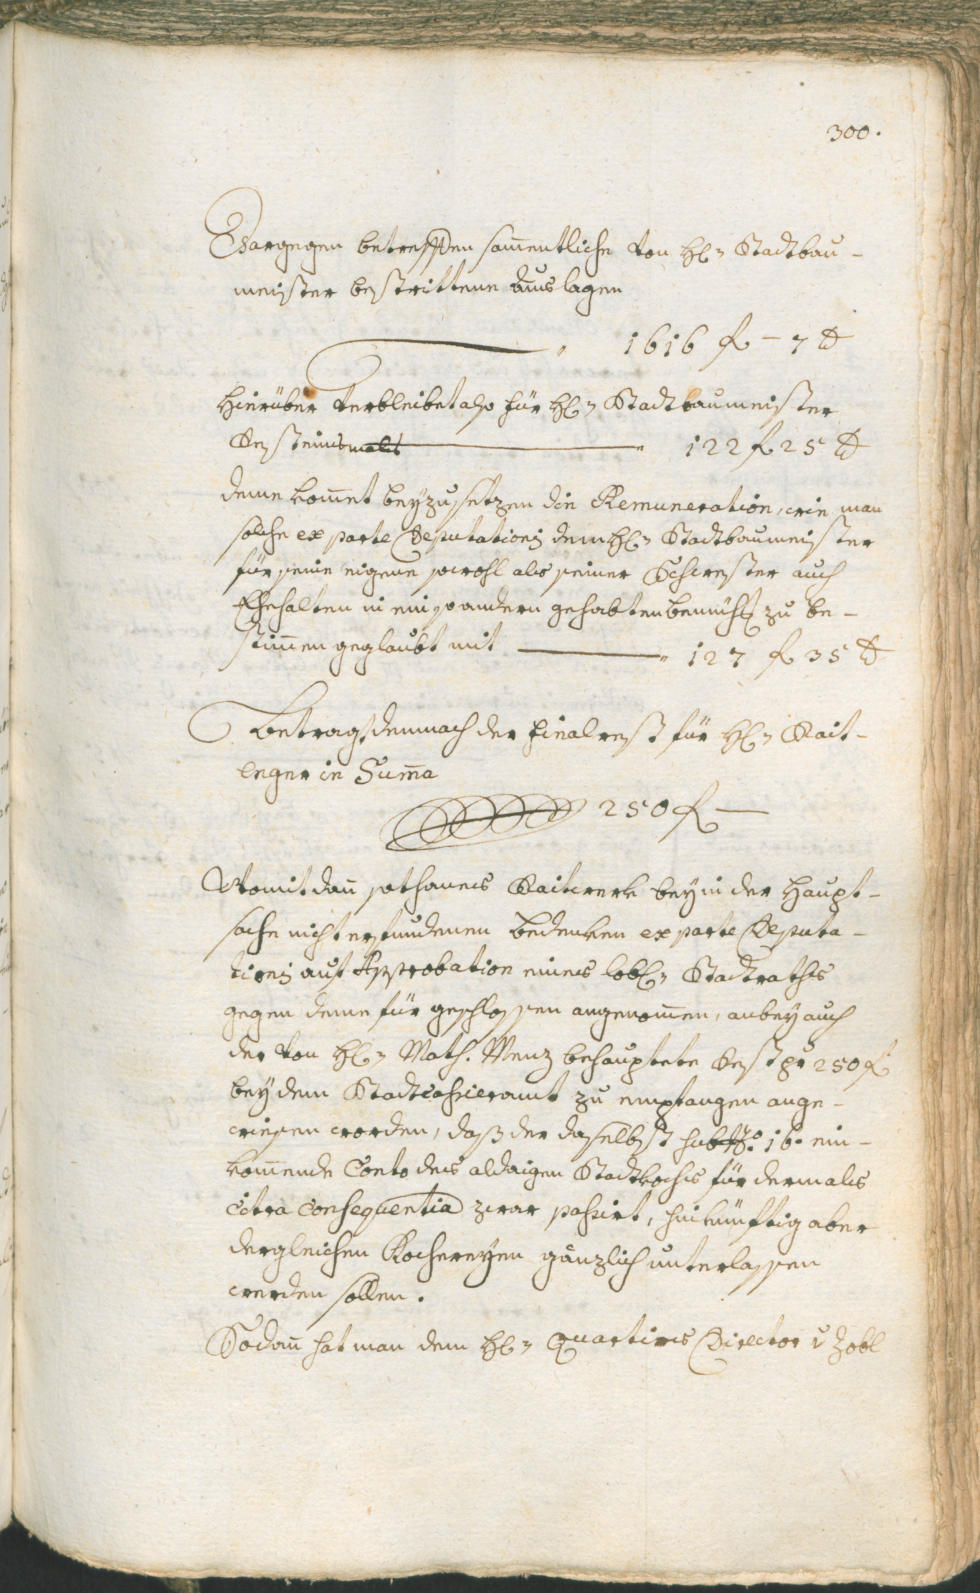 300.
Dargegen betreffen sam̄entliche von H: Stadtbau-
meister bestrittene Auslagen
1616 f - 7 x
Hierüber verbleibet also für H: Stadtbaumeister
Rest einsmals 122 f 25 x
deme kom̄et beyzusetzen die Remuneration, wie man
solche ex parte Deputationis dem H: Stadtbaumeister
für seine eigene sowohl als seiner Schwester auch
Ehehalten in ein so andern gehabten bemühg zu be-
stim̄en geglaubt mit 127 f 35 x
Betragt demnach der Final rest für H: Rait-
leger in Sum̄a
250 f -
Womit dan̄ sothannes Raitwerk bey in der Haupt-
sache nicht erfundenen bedenken ex parte Deputa-
tionis auf Approbation eines löbl: Stadtraths
gegen deme für geschlossen angenom̄en, anbey auch
der von H: Math. Menz behauptete Rest pr 250 f
bey dem Stadtcassieramt zu empfangen ange-
wiesen worden, daß der daselbst sub No. 16. ein-
kom̄ende Conto des aldaigen Stadtkochs für dermals
citra consequentia zwar passirt, hinkünftig aber
dergleichen Kochereyen gänzlich unterlassen
werden sollen.
Sodan̄ hat man dem H: Quartiers Director v Zobl